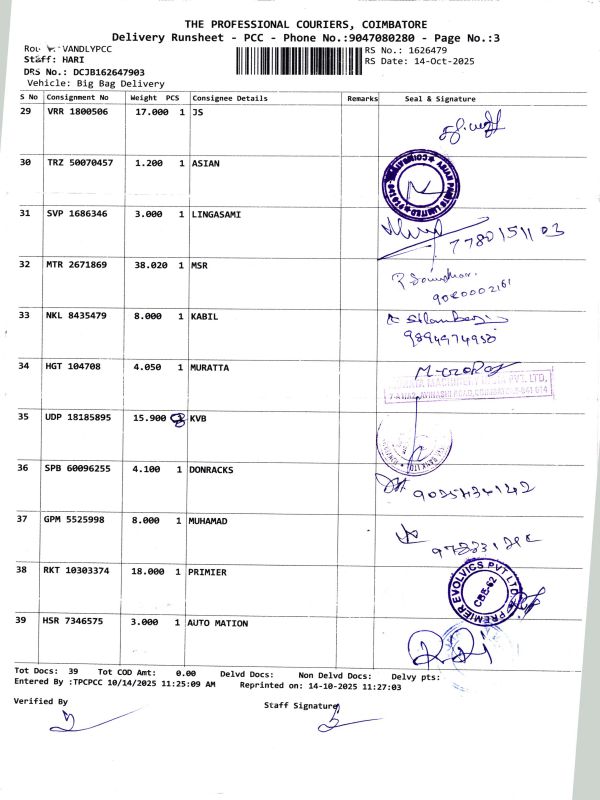 THE PROFESSIONAL COURIERS, COIMBATORE
Delivery Runsheet - PCC - Phone No.:9047080280 - Page No.:3
VANDLYPCC
RS No.: 1626479
Staff: HARI
RS Date: 14-Oct-2025
DRS No.: DCJB162647903
Vehicle: Big Bag Delivery
S No Consignment No Weight PCS Consignee Details Remarks Seal & Signature
29 VRR 1800506 17.000 1 JS
30 TRZ 50070457 1.200 1 ASIAN
ASIAN PAINTS LIMITED
31 SVP 1686346 3.000 1 LINGASAMI
7780151103
32 MTR 2671869 38.020 1 MSR
9080002161
33 NKL 8435479 8.000 1 KABIL
9894974950
34 HGT 104708 4.050 1 MURATTA
35 UDP 18185895 15.900 KVB
36 SPB 60096255 4.100 1 DONRACKS
37 GPM 5525998 8.000 1 MUHAMAD
38 RKT 10303374 18.000 1 PRIMIER
PREMIER EVOLVICS PVT LTD
CBE-62
39 HSR 7346575 3.000 1 AUTO MATION
Tot Docs: 39 Tot COD Amt: 0.00 Delvd Docs: Non Delvd Docs: Delvy pts:
Entered By :TPCPCC 10/14/2025 11:25:09 AM Reprinted on: 14-10-2025 11:27:03
Verified By
Staff Signature